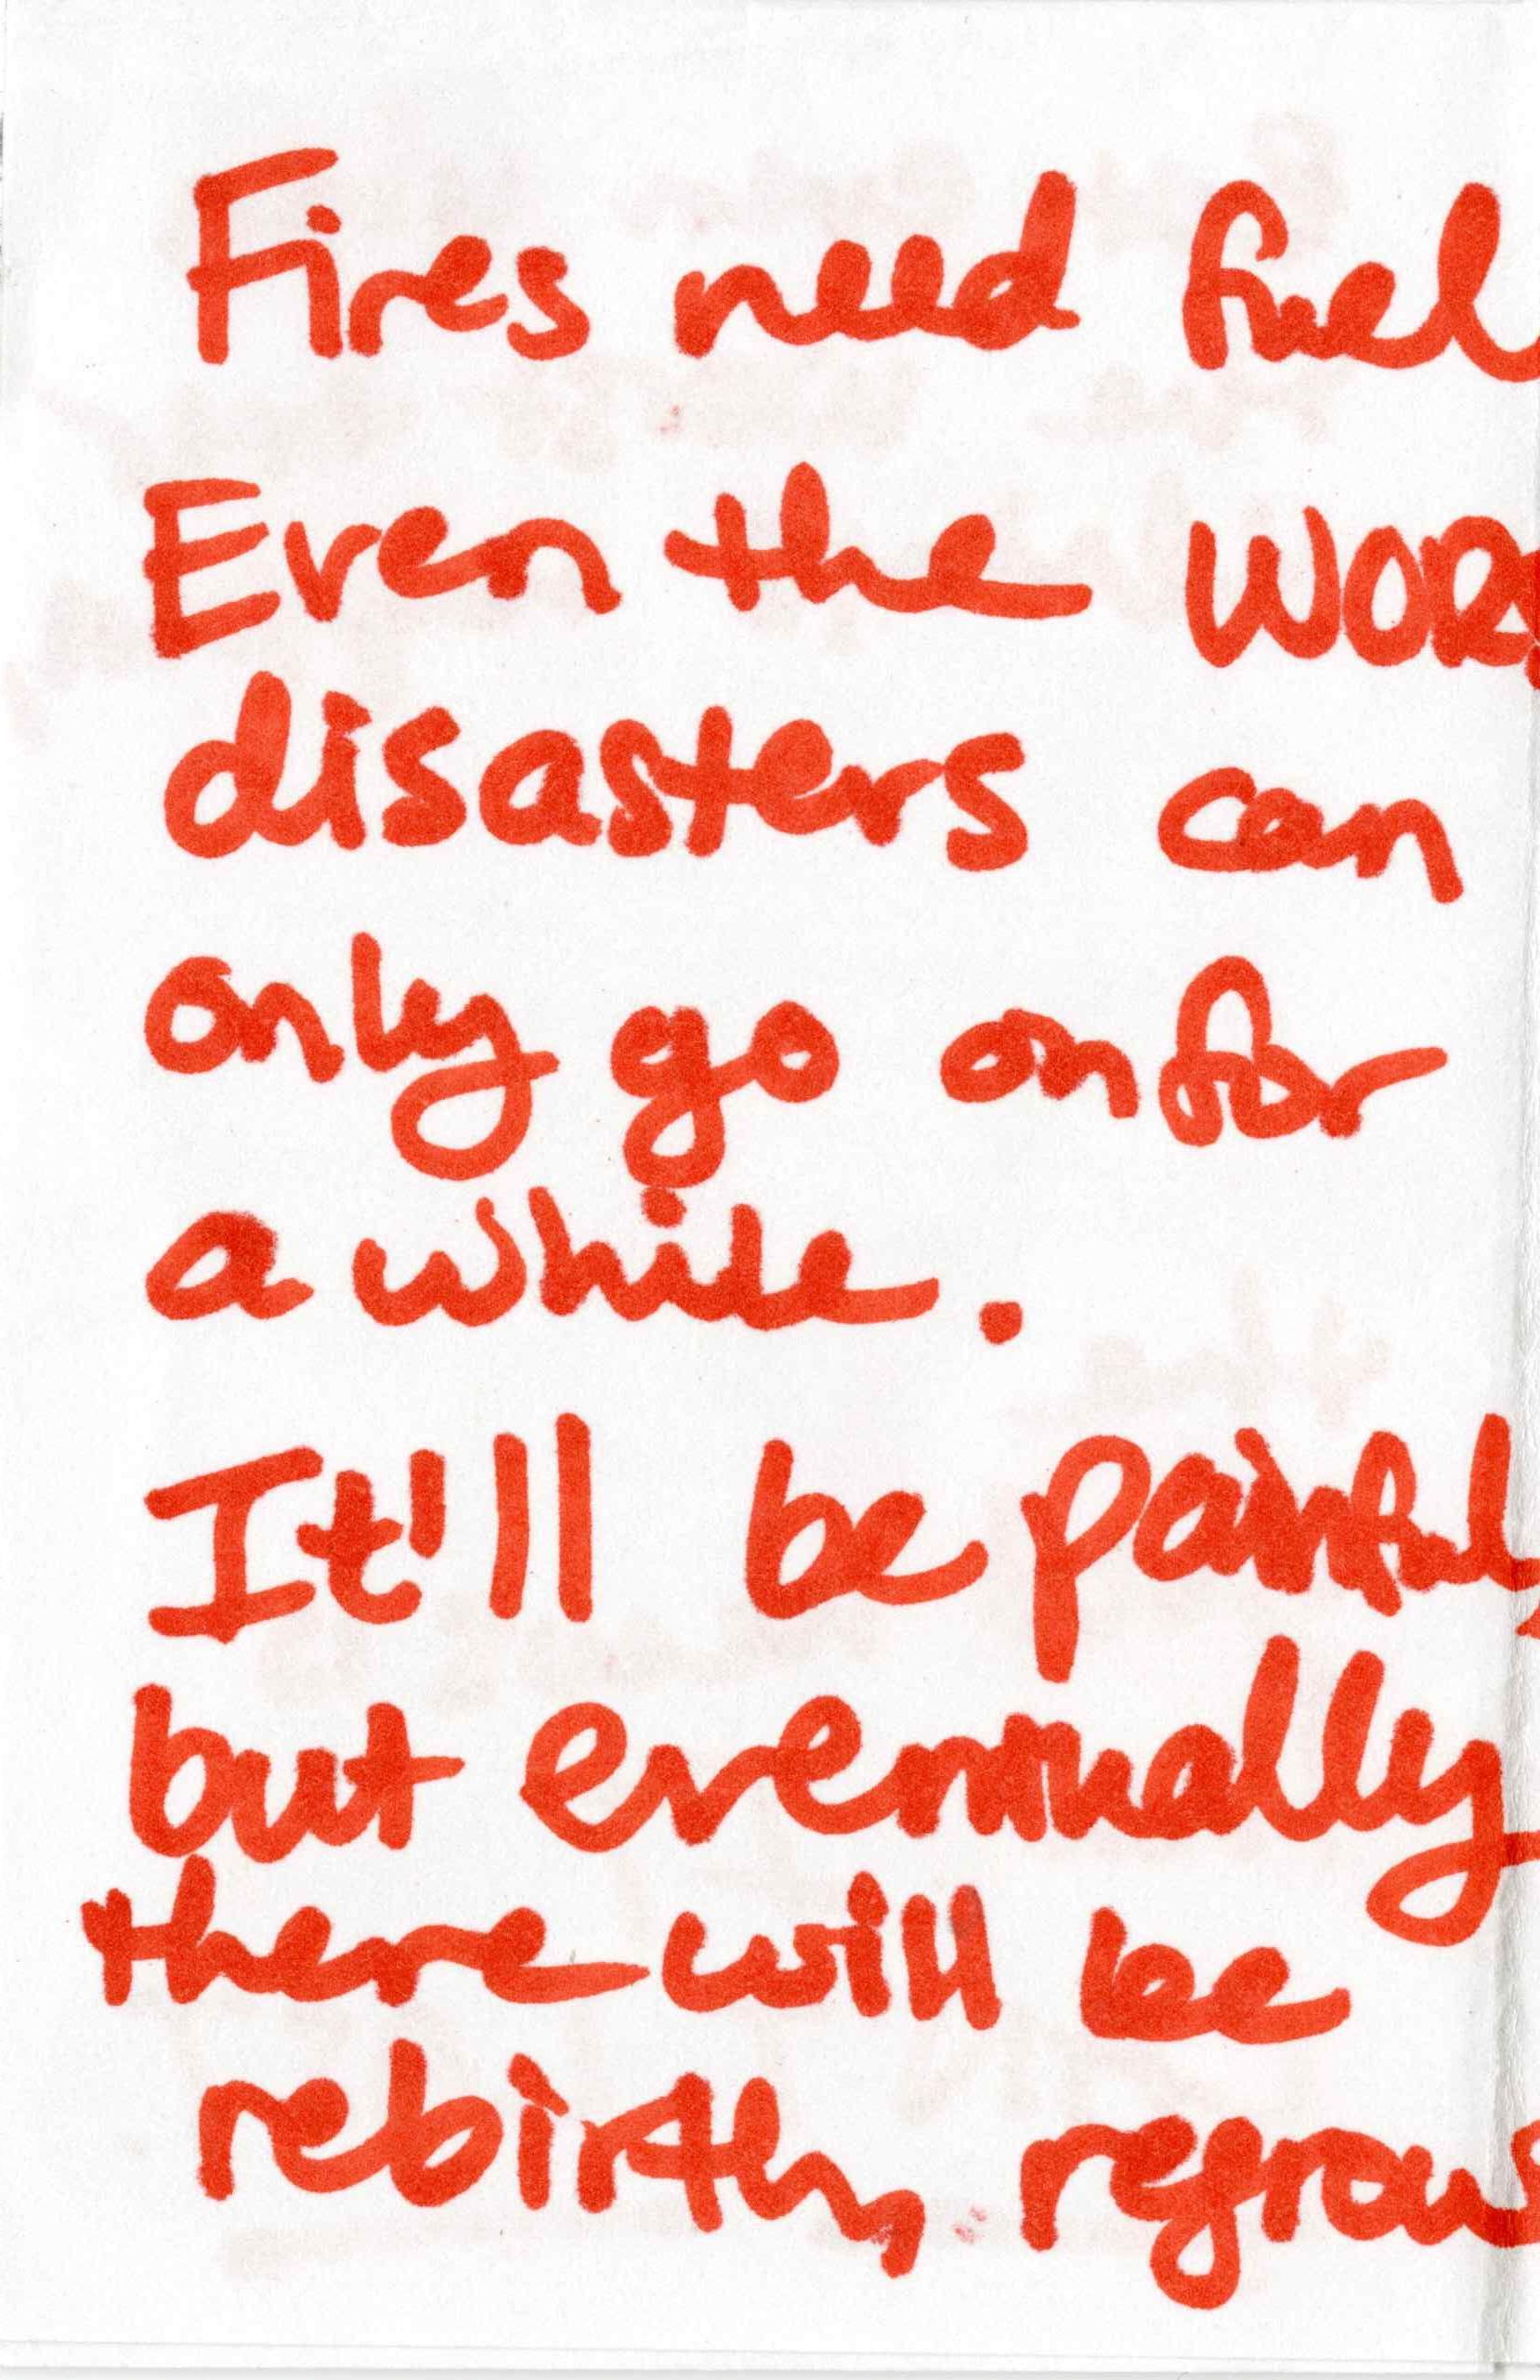 Fires need fuel
Even the WOR
disasters can
only go on for
a while.
It'll be painful
but eventually
there will be
rebirth, regrow